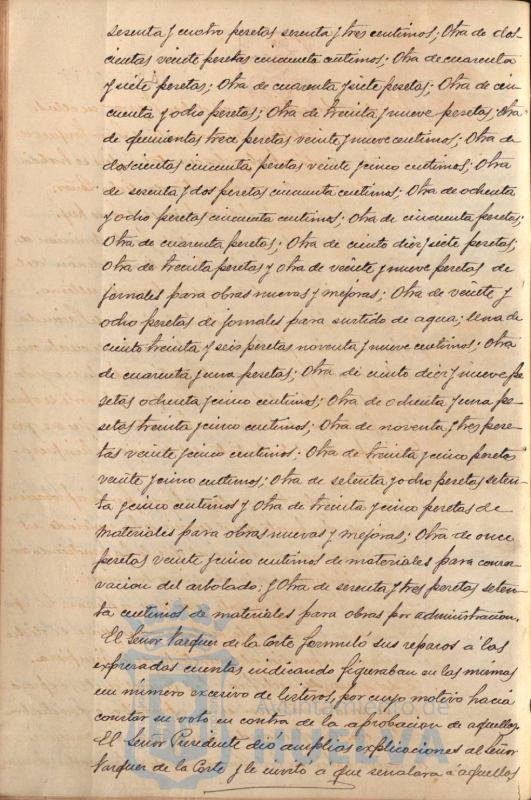 sesenta y cuatro pesetas sesenta y tres centimos; Otra de dos
cientas veinte pesetas cincuenta centimos; Otra de cuarenta
y siete pesetas; Otra de cuarenta y siete pesetas; Otra de cin
cuenta y ocho pesetas; Otra de treinta y nueve pesetas; Otra
de quinientas trece pesetas veinte y nueve centimos; Otra de
doscientas cincuenta pesetas veinte y cinco centimos; Otra
de sesenta y dos pesetas cincuenta centimos; Otra de ochenta
y ocho pesetas cincuenta centimos; Otra de cincuenta pesetas;
Otra de cuarenta pesetas; Otra de ciento diez y siete pesetas;
Otra de treinta pesetas y otra de veinte y nueve pesetas de
jornales para obras nuevas y mejoras; Otra de veinte y
ocho pesetas de jornales para surtido de agua; una de
ciento treinta y seis pesetas noventa y nueve centimos; Otra
de cuarenta y una pesetas; Otra de ciento diez y nueve pe
setas ochenta y cinco centimos; Otra de ochenta y una pe
setas treinta y cinco centimos; Otra de noventa y tres pese
tas veinte y cinco centimos; Otra de treinta y cinco pesetas
veinte y cinco centimos; Otra de setenta y ocho pesetas seten
ta y cinco centimos y Otra de treinta y cinco pesetas de
materiales para obras nuevas y mejoras; Otra de once
pesetas veinte y cinco centimos de materiales para conser
vacion del arbolado; y Otra de sesenta y tres pesetas seten
ta centimos de materiales para obras por administracion.
El Señor Vazquez de la Corte formuló sus reparos á las
expresadas cuentas indicando figuraban en las mismas
un número excesivo de listeros, por cuyo motivo hacia
constar su voto en contra de la aprobacion de aquellas.
El Señor Presidente dió amplias explicaciones al Señor
Vazquez de la Corte y le invitó a que señalara á aquellos
Ayuntamiento de
HUELVA